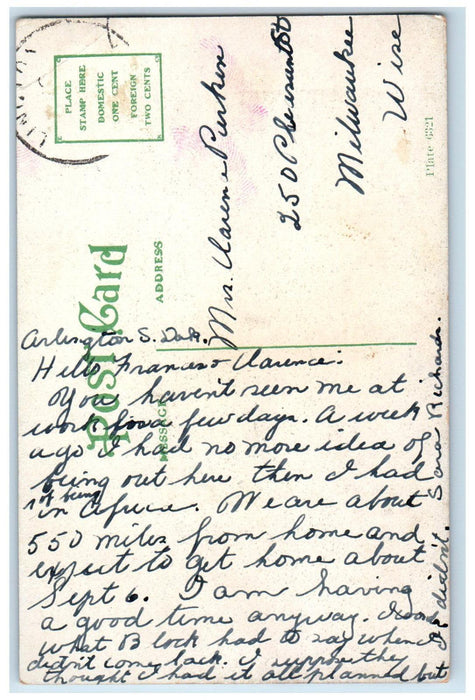 PLACE
STAMP HERE
DOMESTIC
ONE CENT
FOREIGN
TWO CENTS
Post Card
ADDRESS
MESSAGE
Mrs. Clarence
250 Pleasant St
Milwaukee
Wisc
Plate 6921
Arlington S. Dak.
Hello Frances & Clarence:
You haven't seen me at
work for a few days. A week
ago I had no more idea of
being out here then I had
of being
in Africa. We are about
550 miles from home and
expect to get home about
Sept 6. I am having
a good time anyway.
what Block had to say when I
didn't come back. I suppose they
thought I had it all planned but
I didn't. Sara Richards.